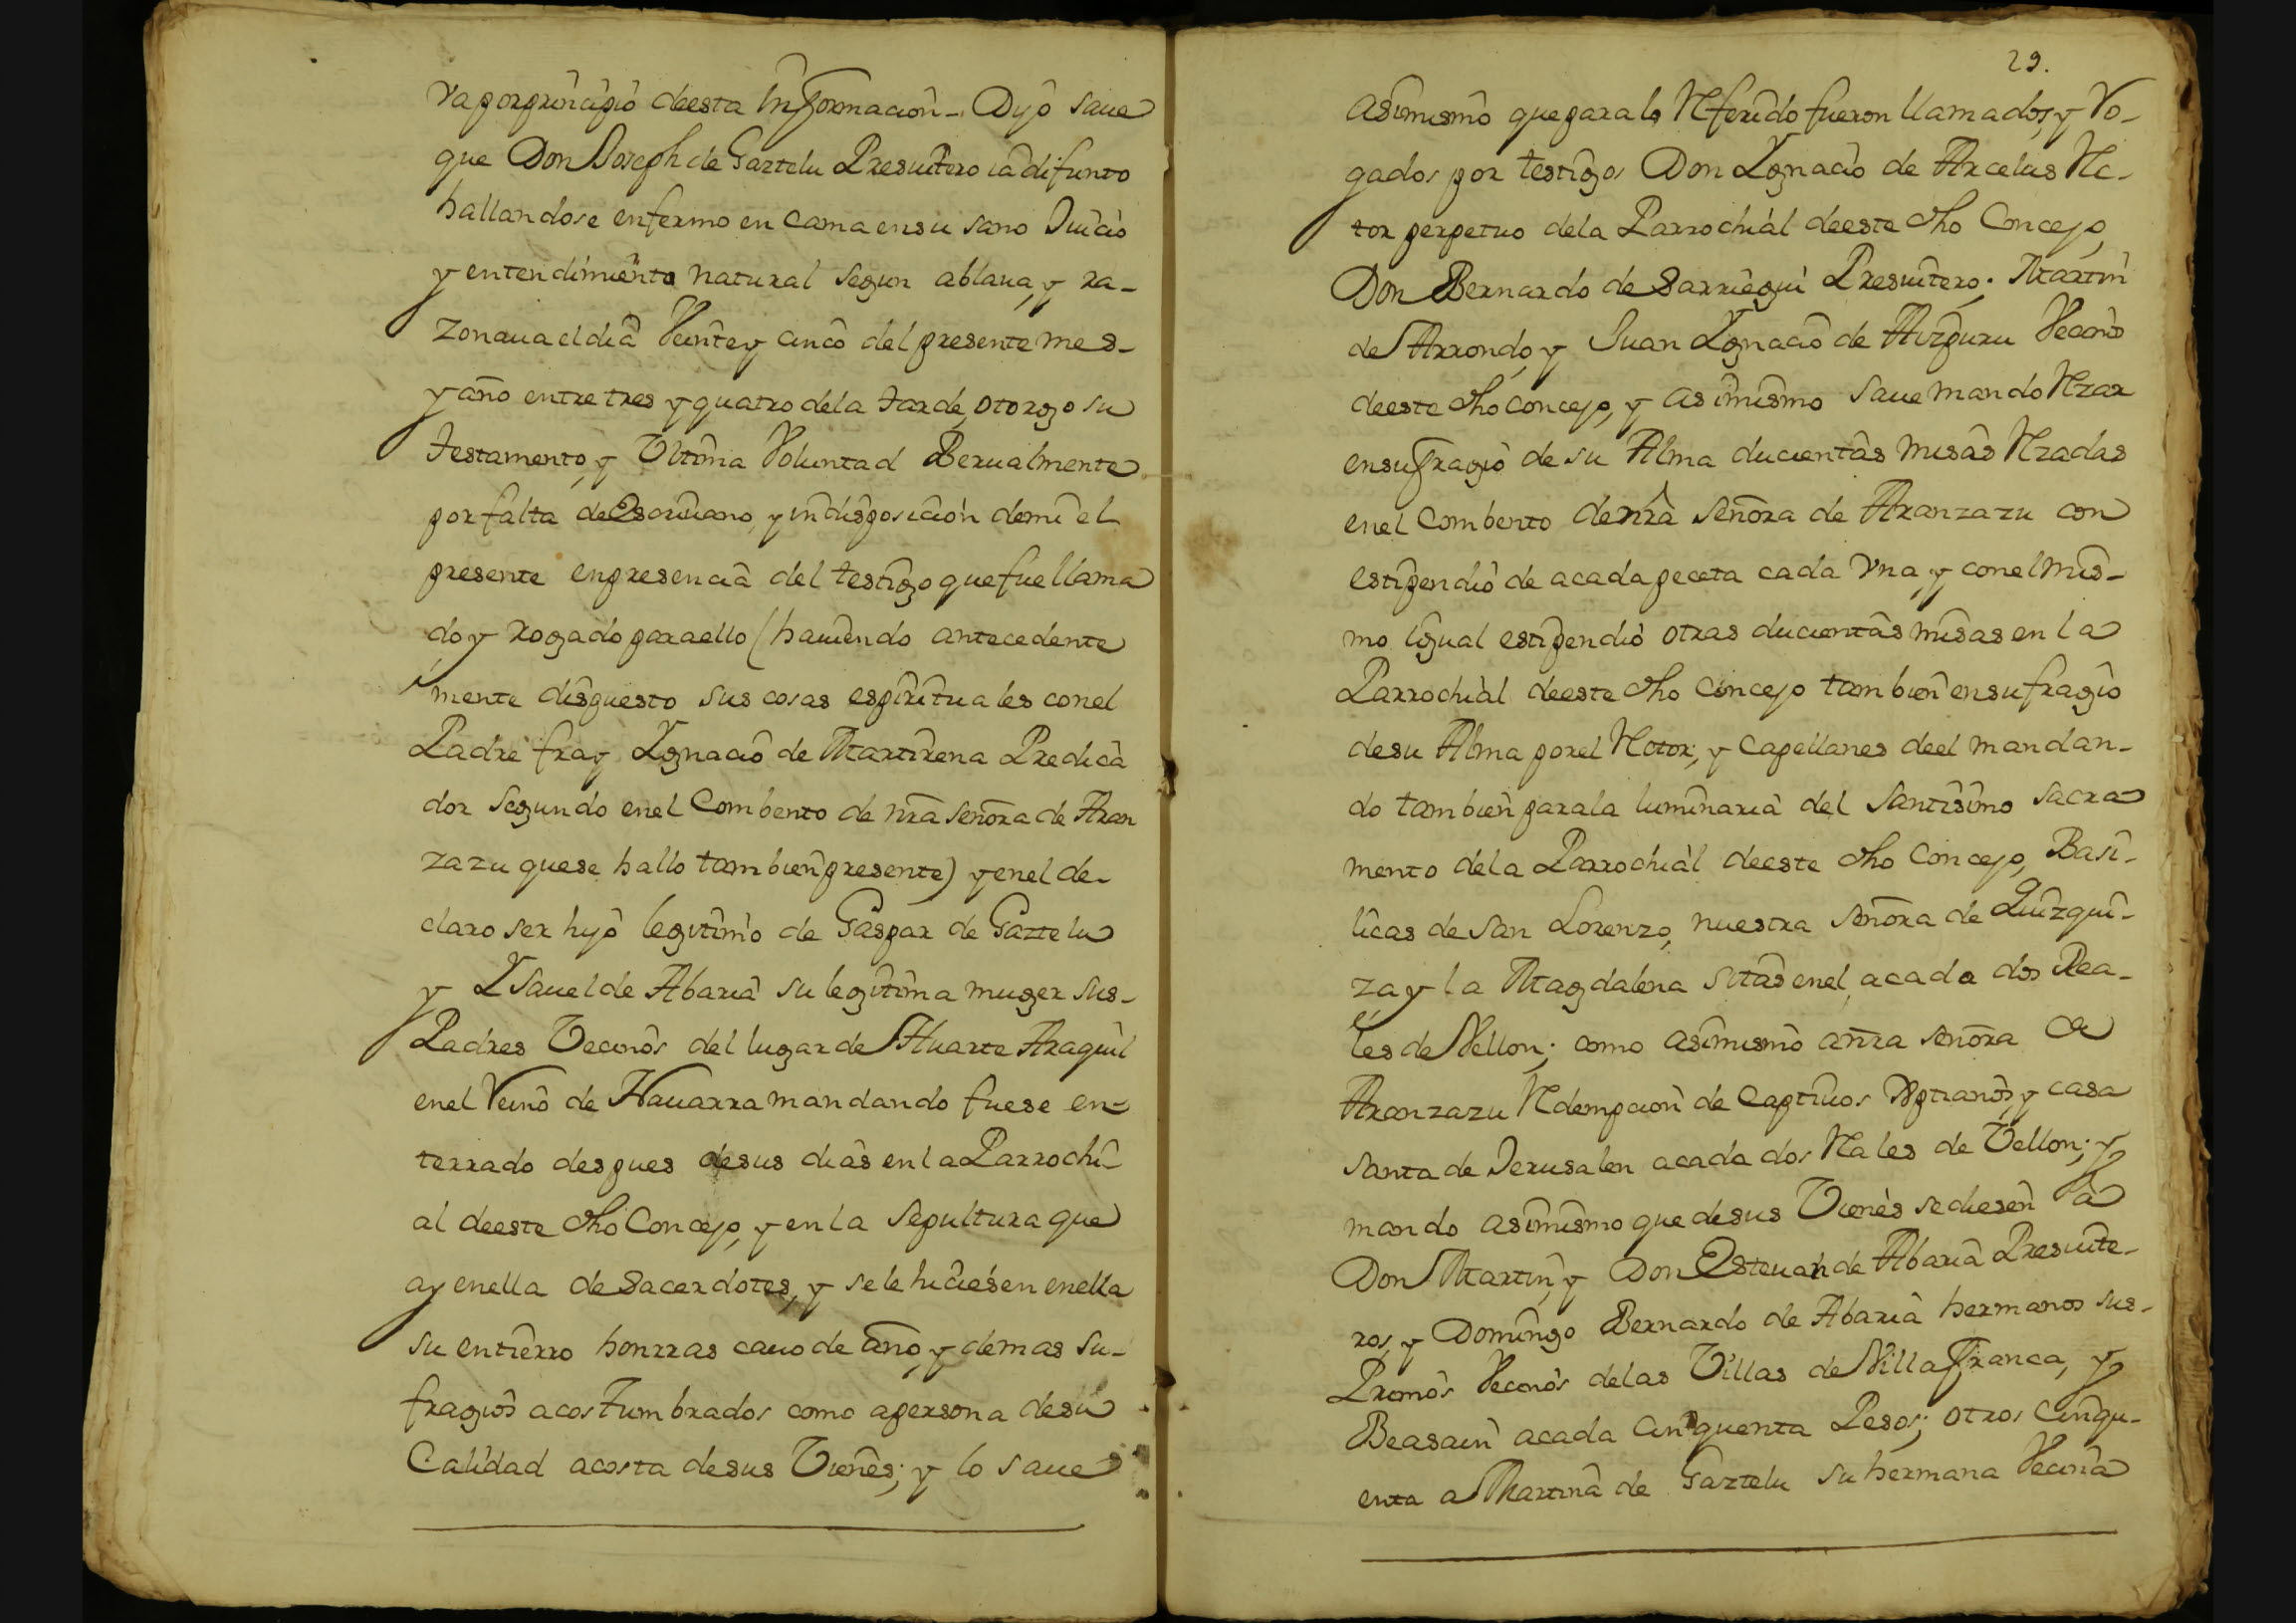 va por prinçipio deesta Informacion - Dijo saue
que Don Joseph de Gaztelu Presuitero ia difunto
hallandose enfermo en cama en su sano Juicio
y entendimiento natural segun ablaua, y ra-
zonaua el dia Veinte y cinco del presente mes-
y año entre tres y quatro dela tarde, otorgo su
testamento, y Vltima Voluntad Berualmente
por falta de Escriuano, y indisposicion de mi el
presente en presencia del testigo que fue llama
do, y rogado para ello (hauiendo antecedente
mente dispuesto sus cosas espirituales con el
Padre fray Ygnacio de Martirena Predica
dor segundo en el Combento de nra señora de Aran
zazu que se hallo tambien presente) y en el de-
claro ser hijo legitimo de Gaspar de Gaztelu
y Ysauel de Abaria su legitima muger sus-
Padres Vecinos del lugar de Huarte Araquil
en el Reino de Nauarra mandando fuese en-
terrado despues de sus dias en la Parrochi-
al deeste dho Concejo, y en la sepultura que
ay en ella de sacerdotes, y se le hiciesen en ella
su entierro honrras cauo de año, y demas su-
fragios acostumbrados como a persona de su
Calidad a costa de sus Vienes; y lo saue
29.
asimismo que para lo Referido fueron llamados, y Ro-
gados por testigos Don Ygnacio de Arcelus Rc-
tor perpetuo dela Parrochial deeste dho Concejo,
Don Bernardo de Sarriegui Presuitero; Martin
de Arrondo, y Juan Ygnacio de Aizpuru Vecinos
deeste dho concejo, y asimismo saue mando Rzar
en sufragio de su Alma ducientas misas Rzadas
en el Combento de nra señora de Aranzazu con
estipendio de a cada peceta cada vna, y con el mis-
mo igual estipendio otras ducientas misas en la
Parrochial deeste dho Concejo tambien en sufragio
de su Alma por el Rctor, y Capellanes deel mandan-
do tambien para la luminaria del santisimo sacra
mento dela Parrochial deeste dho Concejo, Basi-
licas de san Lorenzo, nuestra señora de Quizqui-
za y la Magdalena sitas en el, a cada dos Rea-
les de Vellon; como asimismo a nra señora de
Aranzazu Rdempcion de Captiuos Xptianos, y casa
santa de Jerusalen a cada dos Rales de Vellon; y
mando asimismo que de sus Vienes se diesen a
Don Martin, y Don Esteuan de Abaria Presuite-
ros, y Domingo Bernardo de Abaria hermanos sus-
Primos Vecinos delas Villas de Villafranca, y
Beasain a cada cinquenta Pesos; otros cinqu-
enta a Martina de Gaztelu su hermana Vecina